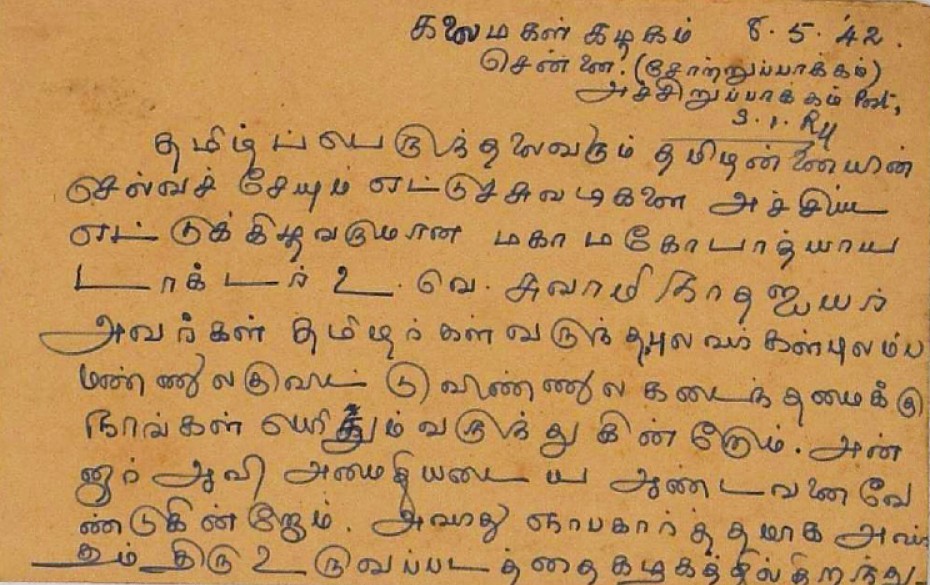 கலைமகள் கழகம் 8.5.'42.
சென்னை. (சோற்றுப்பாக்கம்)
அச்சிறுப்பாக்கம் Post,
S.I.Ry
தமிழ்ப்பெருந்தலைவரும் தமிழன்னையின்
செல்வச் சேயும் எட்டுச்சுவடிகளை அச்சிட்ட
எட்டுக்கிழவருமான மகாமகோபாத்யாய
டாக்டர் உ. வே. சுவாமிநாதஐயர்
அவர்கள் தமிழர்கள்வருந்தபுலவர்கள்புலம்ப
மண்ணுலகுவிட்டு விண்ணுலகடைந்தமைக்கு
நாங்கள் பெரிதும்வருந்துகின்றோம். அன்
னார் ஆவி அமைதியடைய ஆண்டவனைவே
ண்டுகின்றோம். அவரது ஞாபகார்த்தமாக அவர்
தம் திரு உருவப்படத்தை கழகத்தில்திறந்து